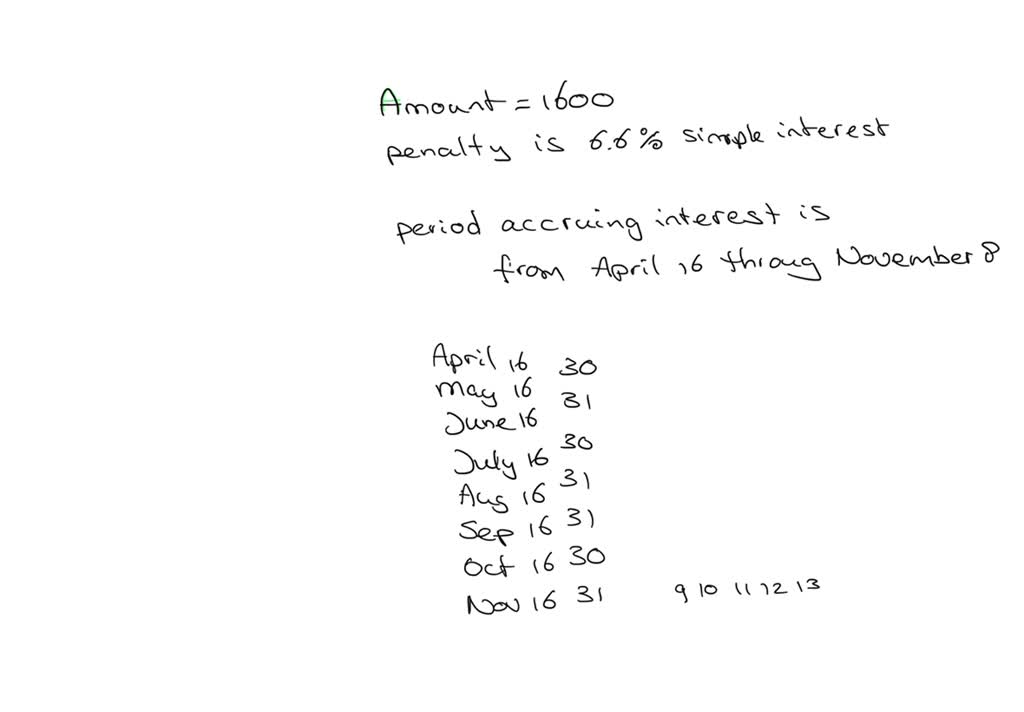 Amount = 1600
penalty is 6.6% simple interest
period accruing interest is
from April 16 throug November 8
April 16 30
may 16 31
June 16
July 16 30
Aug 16 31
Sep 16 31
Oct 16 30
Nov 16 31 9 10 11 12 13